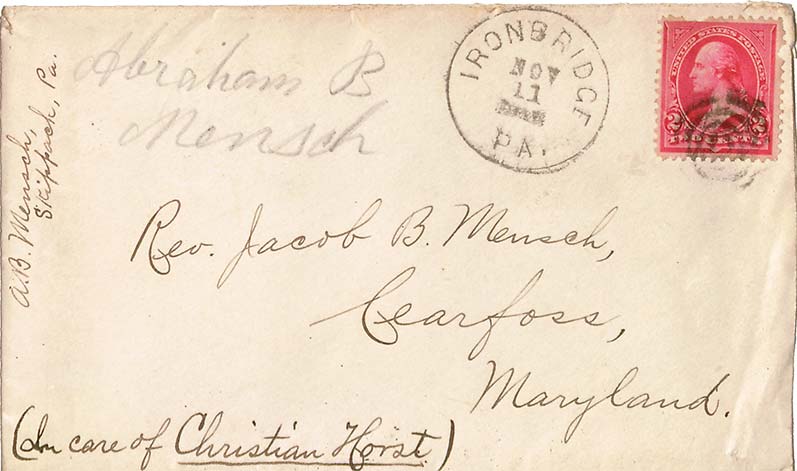 A.B. Mensch,
Skippach, Pa.
Abraham B
Mensch
IRONBRIDGE
NOV
11
PA.
UNITED STATES POSTAGE
2 2
TWO CENTS
Rev. Jacob B. Mensch,
Cearfoss,
Maryland.
(In care of Christian Horst)